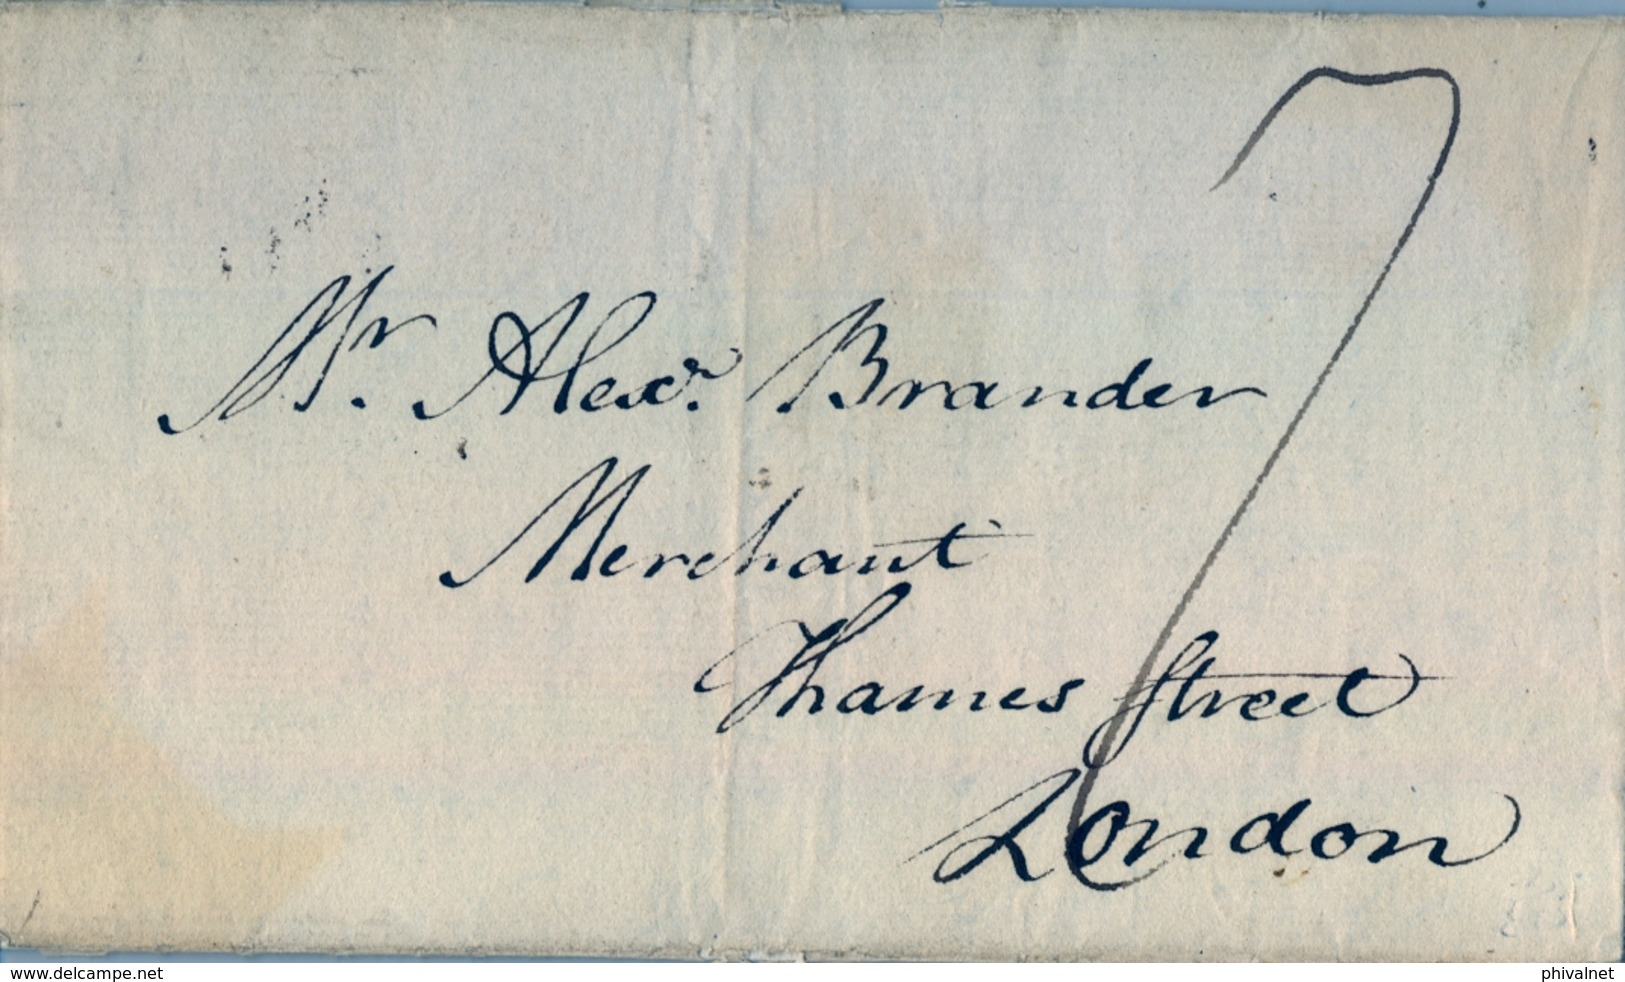 7
Mr. Alexr. Brander
Merchant
Thames Street
London
www.delcampe.net
phivalnet